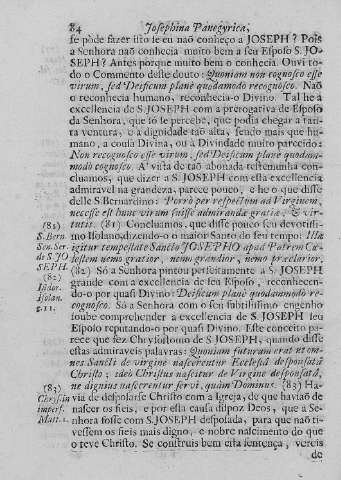 84 Josephina Panegyrica,
se póde fazer isto se eu naõ conheço a JOSEPH? Pois
a Senhora naõ conhecia muito bem a seu Esposo S. JO-
SEPH? Antes porque muito bem o conhecia. Ouvi to-
do o Commento deste douto: Quoniam non cognosco esse
virum, sed Deificum planè quodamodo recognosco. Naõ
o reconhecia humano, reconhecia-o Divino. Tal he a
excellencia de S. JOSEPH com a prerogativa de Esposo
da Senhora, que só se percebe, que podia chegar a tan-
ta ventura, e a dignidade taõ alta, sendo mais que hu-
mano, a cousa Divina, ou à Divindade muito parecido:
Non recognosco esse virum, sed Deificum planè quodam-
modò cognosco. A' vista de taõ abonada testemunha con-
cluamos, que dizer a S. JOSEPH com esta excellencia
admiravel na grandeza, parece pouco, e he o que disse
delle S. Bernardino: Porrò per respectum ad Virginem,
necesse est hunc virum fuisse admirandæ gratiæ, & vir-
(81) tutis. (81) Concluamos, que disse pouco seu devotissi-
S. Bern. mo Isolano, dizendo-o o maior Santo do seu tempo: Ille
Sen. Ser. igitur tempestate Sancto JOSEPHO apud Patrem Cœ-
de S. JO lestem nemo gratior, nemo grandior, nemo præclarior.
SEPH. (82) Só a Senhora pintou perfeitamente a S. JOSEPH
(82) grande com a excellencia de seu Esposo, reconhecen-
Isidor. do-o por quasi Divino: Deificum planè quodammodo re-
Isolan. cognosco. Só a Senhora com o seu subtilissimo engenho
p. 11. soube comprehender a excellencia de S. JOSEPH seu
Esposo reputando-o por quasi Divino. Este conceito pa-
rece que fez Chrysostomo de S. JOSEPH, quando disse
estas admiraveis palavras: Quoniam futurum erat ut om-
nes Sancti de virgine nascerentur Ecclesia desponsatâ
Christo; ideò Christus nascitur de Virgine desponsatâ,
(83) ne dignius nascerentur servi, quàm Dominus. (83) Ha-
Chrys. in via de desposarse Christo com a Igreja, de que haviaõ de
imperf. nascer os fieis, e por esta causa dispoz Deos, que a Se-
Matt. 1. nhora fosse com S. JOSEPH desposada, para que naõ ti-
vessem os fieis mais digno, e nobre nascimento do que
o teve Christo. Se construis bem esta sentença, vereis
de